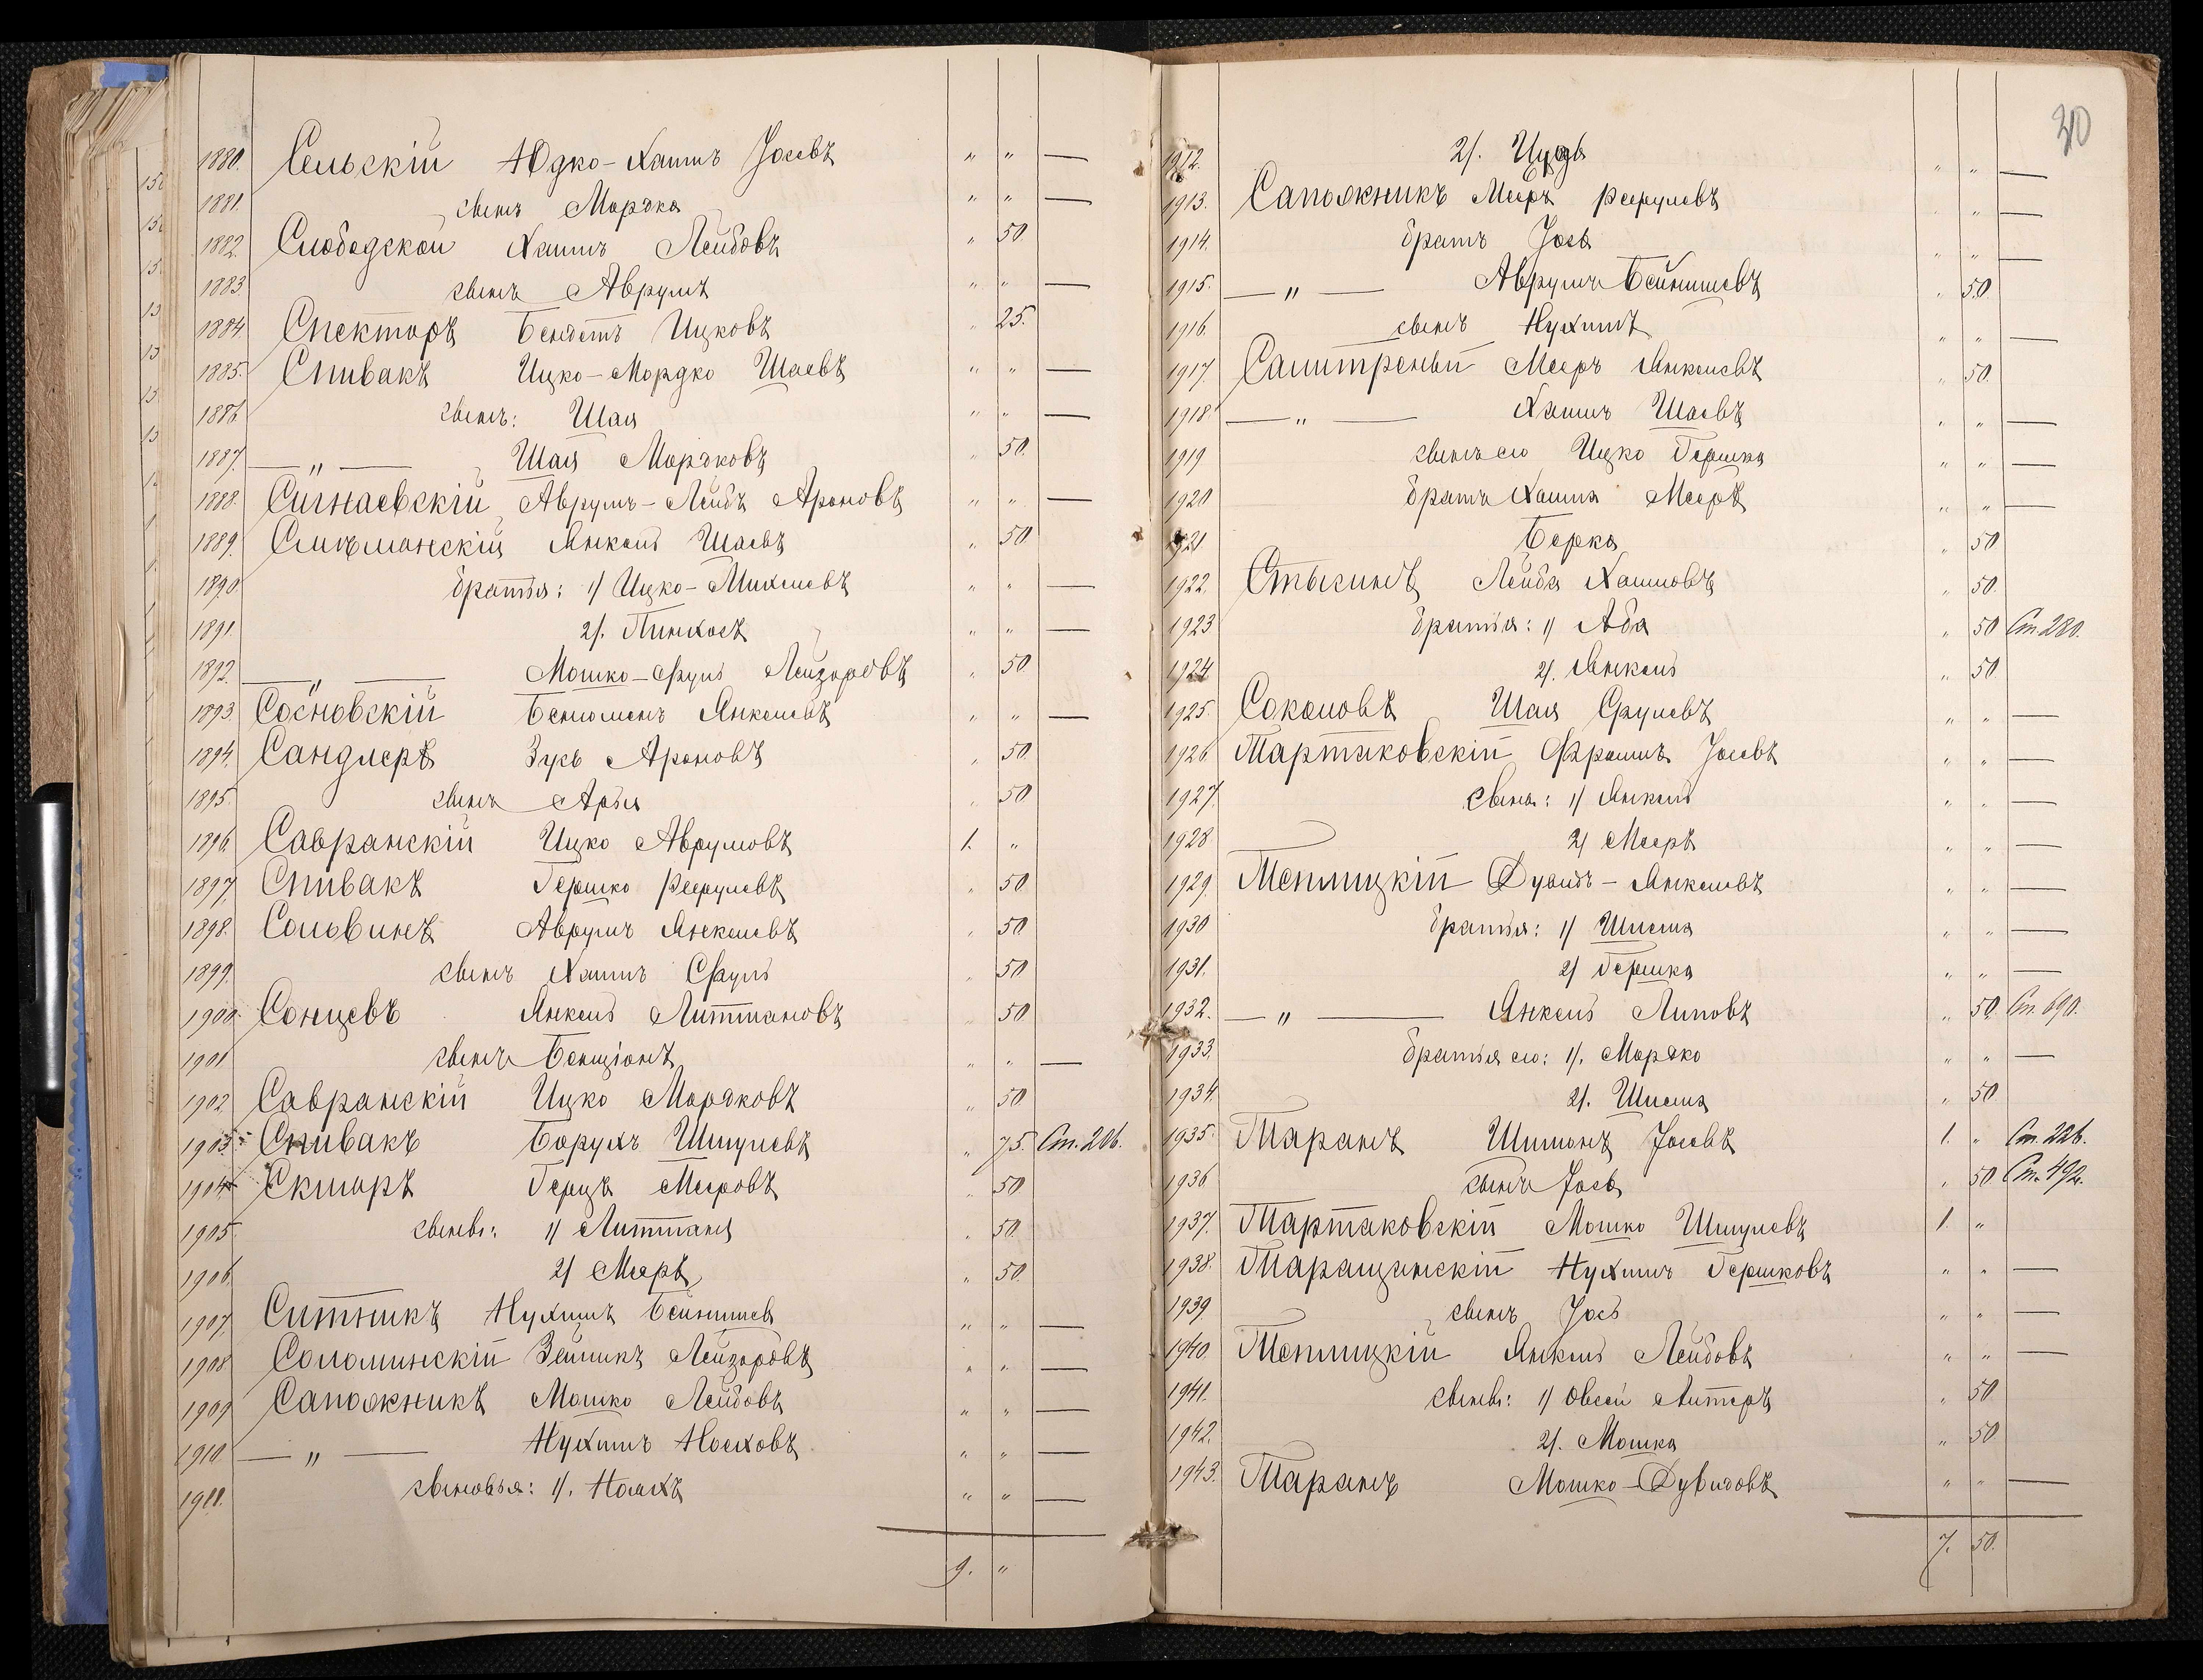 1880. Сельскій Юдко-Хаимъ Іосевъ " " —
1881. сынъ Мордко " " —
1882. Слободской Хаимъ Лейбовъ " 50.
1883. сынъ Аврумъ " " —
1884. Спекторъ Бенѣетъ Ицковъ " 25.
1885. Спивакъ Ицко-Мордко Шаевъ " " —
1886. сынъ: Шая " " —
1887. — " — Шая Мордковъ " 50.
1888. Сигнаевскій Аврумъ-Лейбъ Ароновъ " " —
1889. Янкель Шаевъ " 50
1890. братья: 1/ Ицко-Михелевъ " " —
1891. 2/. Пинхосъ " " —
1892. — " — Мошко-Сруль Лейзоровъ " 50.
1893. Сосновскій Беньоменъ Янкелевъ " " —
1894. Сандлеръ Зусь Ароновъ " 50.
1895. сынъ Арья " 50
1896. Савранскій Ицко Аврумовъ 1. "
1897. Спивакъ Гершко Сруловъ " 50.
1898. Сольвинъ Аврумъ Янкелевъ " 50.
1899. сынъ Хаимъ Сруль " 50
1900. Сонцевъ Янкель Литмановъ " 50
1901 сынъ Бенціонъ " " —
1902. Савранскій Ицко Мордковъ " 50
1903. Спивакъ Борухъ Шмулевъ " 75. Ст. 206.
1904. Скляръ Герцъ Мееровъ " 50
1905. сыновья: 1/ Литманъ " 50.
1906. 2/ Мееръ " 50.
1907. Ситникъ Нухимъ Бейнишев " " —
1908. Соломинскій Зейликъ Лейзоровъ " " —
1909 Сапожникъ Мошко Лейбовъ " " —
1910 — " — Нухимъ Ноеховъ " " —
1911. сыновья: 1/. Ноихъ " " —
9. "
30
1912. 2/. " " —
1913. Сапожникъ Мееръ Сруловъ " " —
1914. братъ Іось " " —
1915. — " — Аврумъ Бейнишевъ " 50.
1916. сынъ Нухимъ " " —
1917. Салитреный Мееръ Янкелевъ " 50.
1918. — " — Хаимъ Шаевъ " " —
1919 сынъ его Ицко Гершко " " —
1920 братъ Хаима Мееръ " " —
1921 Берко " 50
1922. Стысинъ Лейба Хаимовъ " 50.
1923 братья: 1/ Аба " 50 Ст. 280.
1924 2/. Янкель " 50
1925. Соколовъ Шая Срулевъ " " —
1926. Тартаковскій Фроимъ Іосевъ " " —
1927. сыны: 1/ Янкель " " —
1928 2/ Мееръ " " —
1929. Теплицкій Дувидъ-Янкелевъ " " —
1930 братья: 1/ Шлема " " —
1931. 2/ Гершко " " —
1932. — " — Янкель Липовъ " 50. Ст. 690.
1933. братья его: 1/. Мордко " " —
1934. 2/. Шлема " 50.
1935. Таранъ Шимонъ Іосевъ 1. " Ст. 226.
1936 сынъ Іось " 50 Ст. 492.
1937. Тартаковскій Мошко Шмулевъ 1. "
1938. Таращанскій Нухимъ Гершковъ " " —
1939. сынъ Іось " " —
1940. Теплицкій Янкель Лейбовъ " " —
1941. сыны: 1/ Овсей Литеръ " 50
1942. 2/. Мошко " 50
1943. Таранъ Мошко-Дувидовъ " " —
7. 50.